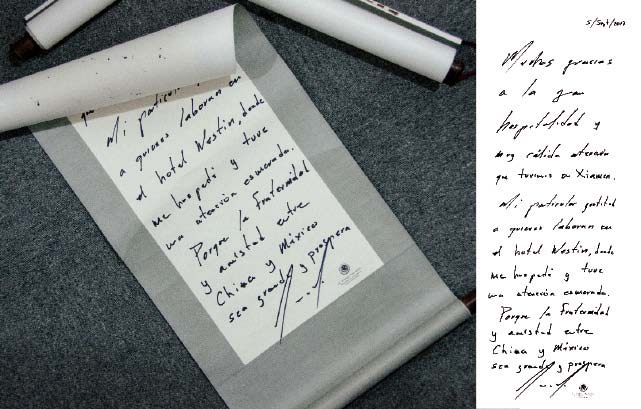 Mi particular
a quienes laboran en
el hotel Westin, donde
me hospedé y tuve
una atención esmerada.
Porque la fraternidad
y amistad entre
China y México
sea grande y prospera
5/Sept/2017
Muchas gracias
a la gran
hospitalidad y
muy cálida atención
que tuvimos en Xiamen.
Mi particular gratitud
a quienes laboran en
el hotel Westin, donde
me hospedé y tuve
una atención esmerada.
Porque la fraternidad
y amistad entre
China y México
sea grande y prospera